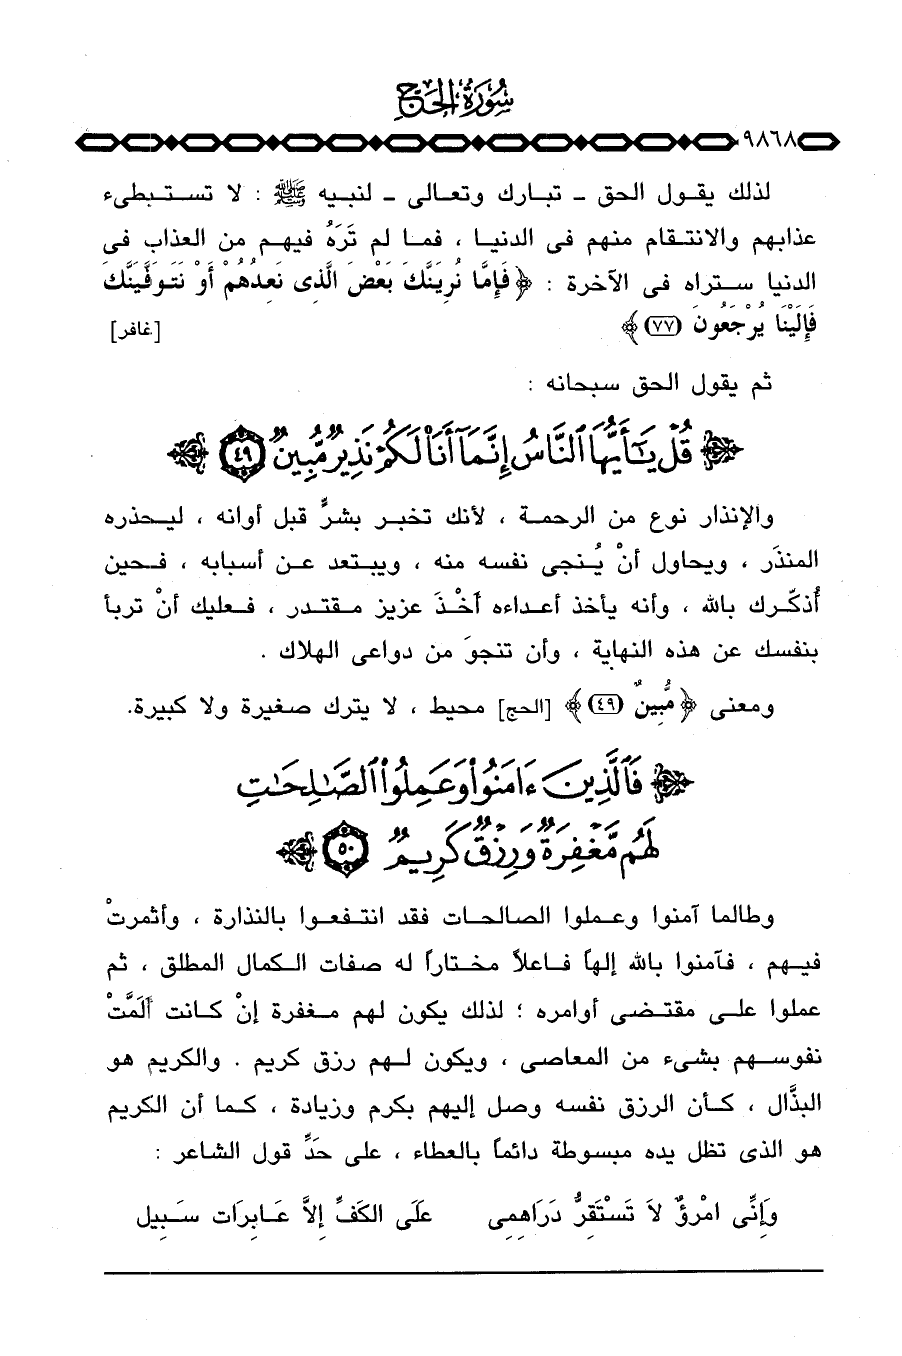 سُورَةُ الحَجّ
٩٨٦٨
لذلك يقول الحق - تبارك وتعالى - لنبيه ﷺ : لا تستبطىء
عذابهم والانتقام منهم فى الدنيا ، فما لم تَرَهُ فيهم من العذاب فى
الدنيا ستراه فى الآخرة : ﴿ فَإِمَّا نُرِيَنَّكَ بَعْضَ الَّذِى نَعِدُهُمْ أَوْ نَتَوَفَّيَنَّكَ
فَإِلَيْنَا يُرْجَعُونَ (٧٧) ﴾ [غافر]
ثم يقول الحق سبحانه :
﴿ قُلْ يَٰٓأَيُّهَا ٱلنَّاسُ إِنَّمَآ أَنَا۠ لَكُمْ نَذِيرٌ مُّبِينٌ ٤٩ ﴾
والإنذار نوع من الرحمة ، لأنك تخبر بشرٍّ قبل أوانه ، ليحذره
المنذَر ، ويحاول أنْ يُنجى نفسه منه ، ويبتعد عن أسبابه ، فحين
أُذكّرك بالله ، وأنه يأخذ أعداءه أَخْذَ عزيز مقتدر ، فعليك أنْ تربأ
بنفسك عن هذه النهاية ، وأن تنجوَ من دواعى الهلاك .
ومعنى ﴿ مُّبِينٌ (٤٩) ﴾ [الحج] محيط ، لا يترك صغيرة ولا كبيرة.
﴿ فَٱلَّذِينَ ءَامَنُوا۟ وَعَمِلُوا۟ ٱلصَّٰلِحَٰتِ
لَهُم مَّغْفِرَةٌ وَرِزْقٌ كَرِيمٌ ٥٠ ﴾
وطالما آمنوا وعملوا الصالحات فقد انتفعوا بالنذارة ، وأثمرتْ
فيهم ، فآمنوا بالله إلهاً فاعلاً مختاراً له صفات الكمال المطلق ، ثم
عملوا على مقتضى أوامره ؛ لذلك يكون لهم مغفرة إنْ كانت أَلَمَّتْ
نفوسهم بشىء من المعاصى ، ويكون لهم رزق كريم . والكريم هو
البذَّال ، كأن الرزق نفسه وصل إليهم بكرم وزيادة ، كما أن الكريم
هو الذى تظل يده مبسوطة دائماً بالعطاء ، على حَدِّ قول الشاعر :
وَإِنِّى امْرؤٌ لاَ تَسْتَقِرُّ دَرَاهِمِى عَلَى الكَفِّ إِلاَّ عَابِرَات سَبِيل